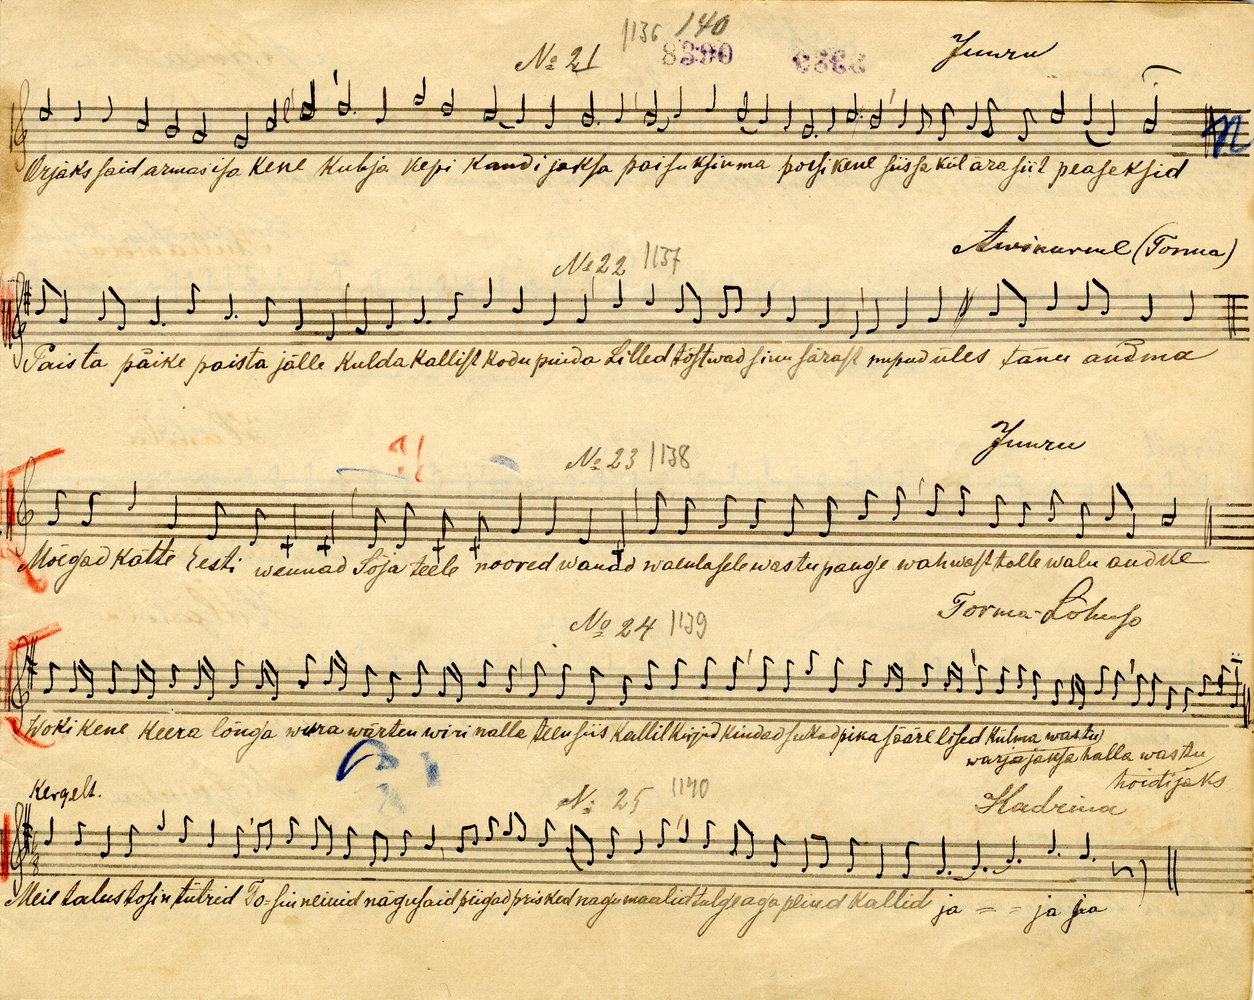 1136 140
№ 21 8390 Juuru
Orjaks said armas isa kene kubja kepi kandijaksa paisu ksiuma poisi kene siisse kül ära siit peaseksid
№ 22 1137 Awinurme (Torma)
Paista päike paista jälle kulda kallist kodu pinda Lilled tõstwad sinu särast nupud üles tänu andma
№ 23 1138 Juuru
Mõegad kätte Eesti wennad Sõja teele noored wanad waenlasele wastu pange wahwast talle walu andke
№ 24 1139 Torma-Lohusu
Woki kene keera lõnga wura wärten wiri nalla teen siis kallil kirjud kindad sukad pika sääre lised külma wastu
warjajaksa halla wastu
hoidijaks
Kergelt. № 25 1140 Hadrina
6/8
Meie talus tosin tütrid To=sin neiuid nägusaid piigad prisked nagu maalid sulge aga peiud kallid ja = = ja jaa